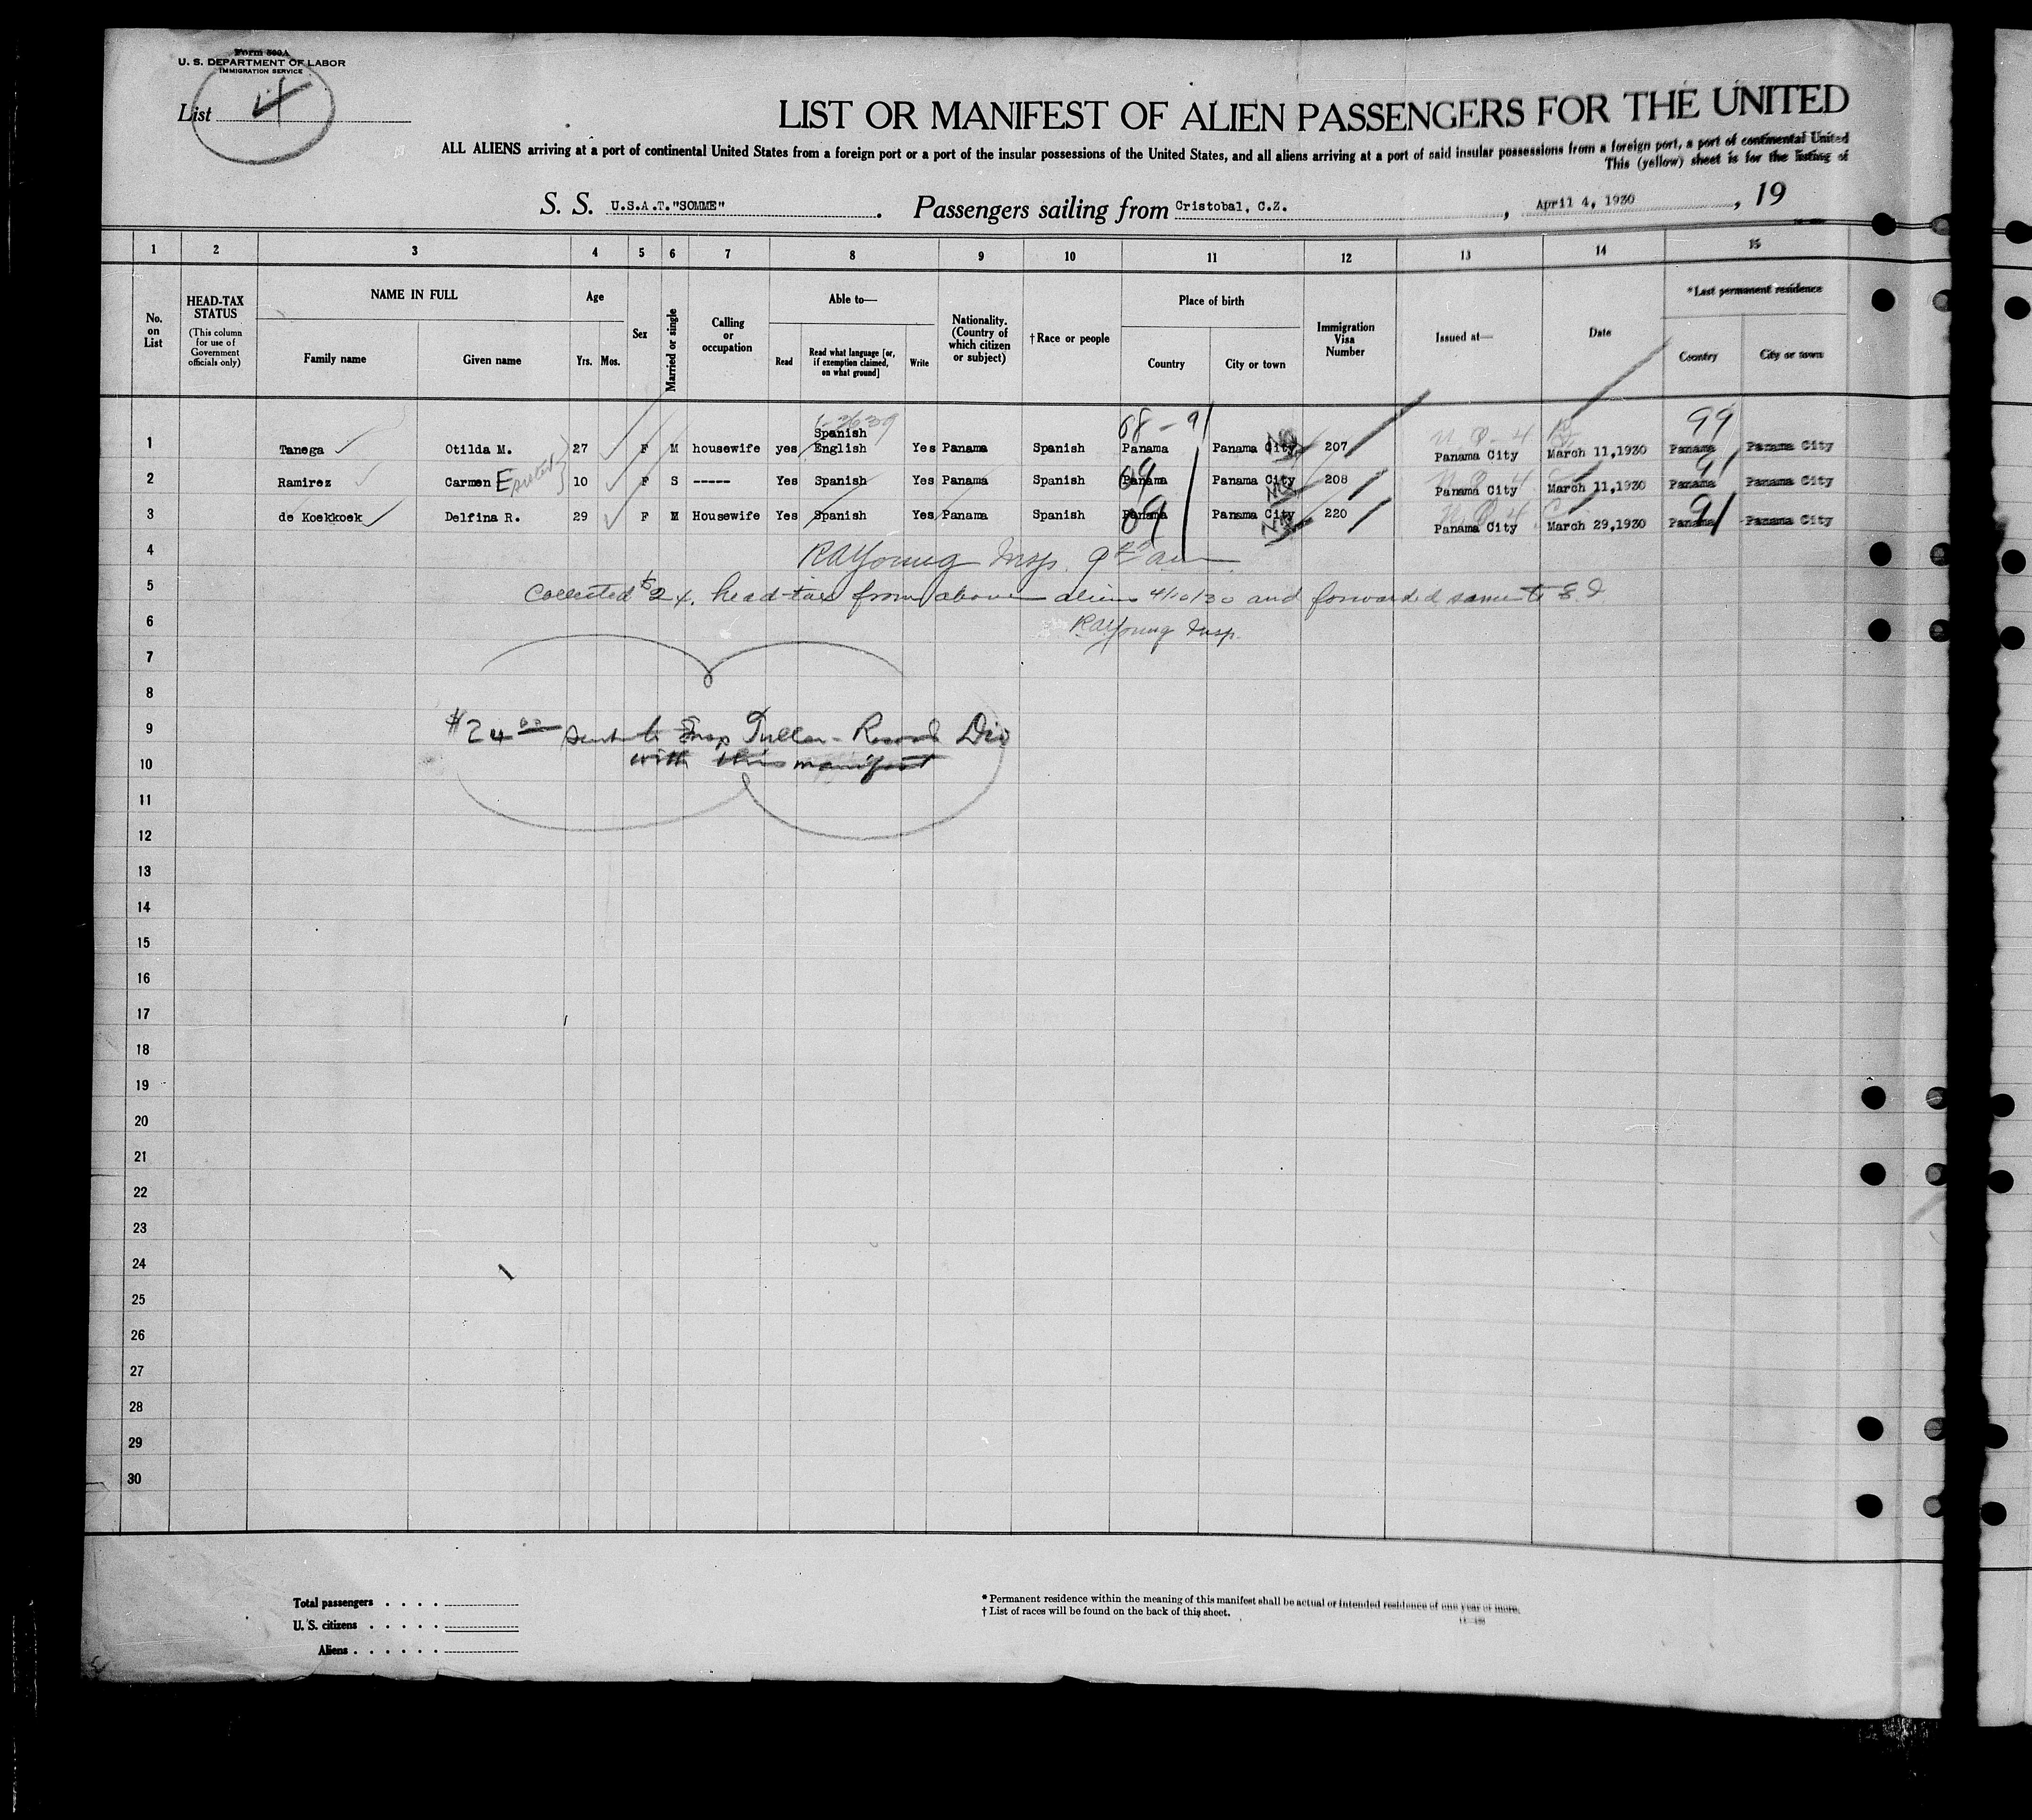 Form 500A
U. S. DEPARTMENT OF LABOR
IMMIGRATION SERVICE
List 4
LIST OR MANIFEST OF ALIEN PASSENGERS FOR THE UNITED
ALL ALIENS arriving at a port of continental United States from a foreign port or a port of the insular possessions of the United States, and all aliens arriving at a port of said insular possessions from a foreign port, a port of continental United
This (yellow) sheet is for the listing of
S. S. U.S.A.T."SOMME". Passengers sailing from Cristobal, C.Z., April 4, 1930, 19
1 2 3 4 5 6 7 8 9 10 11 12 13 14 15
No. on List
HEAD-TAX STATUS
(This column for use of Government officials only)
NAME IN FULL
Family name Given name
Age
Yrs. Mos.
Sex
Married or single
Calling or occupation
Able to—
Read Read what language [or, if exemption claimed, on what ground] Write
Nationality. (Country of which citizen or subject)
†Race or people
Place of birth
Country City or town
Immigration Visa Number
Issued at—
Date
*Last permanent residence
Country City or town
68 - 91 99
1 Tanega Otilda M. 27 F M housewife yes Spanish English Yes Panama Spanish Panama Panama City 207 Panama City March 11,1930 Panama Panama City
2 Ramirez Carmen E 10 F S ----- Yes Spanish Yes Panama Spanish Panama Panama City 208 Panama City March 11,1930 Panama Panama City
3 de Koekkoek Delfina R. 29 F M Housewife Yes Spanish Yes Panama Spanish Panama Panama City 220 Panama City March 29,1930 Panama Panama City
4 RAYoung Insp.
5 Collected $24. head-tax from above aliens 4/10/30 and forwarded same to E.I.
6 RAYoung Insp.
7
8
9 $24 00 sent to Insp Record Div
10 with this manifest
11
12
13
14
15
16
17
18
19
20
21
22
23
24
25
26
27
28
29
30
Total passengers . . . .
U. S. citizens . . . . .
Aliens . . . . . .
* Permanent residence within the meaning of this manifest shall be actual or intended residence of one year or more.
† List of races will be found on the back of this sheet.